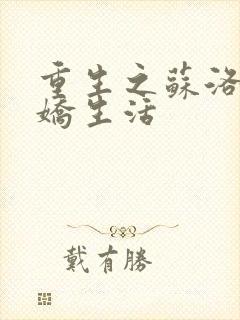 重生之蘇洛
嬌生活
戴有勝